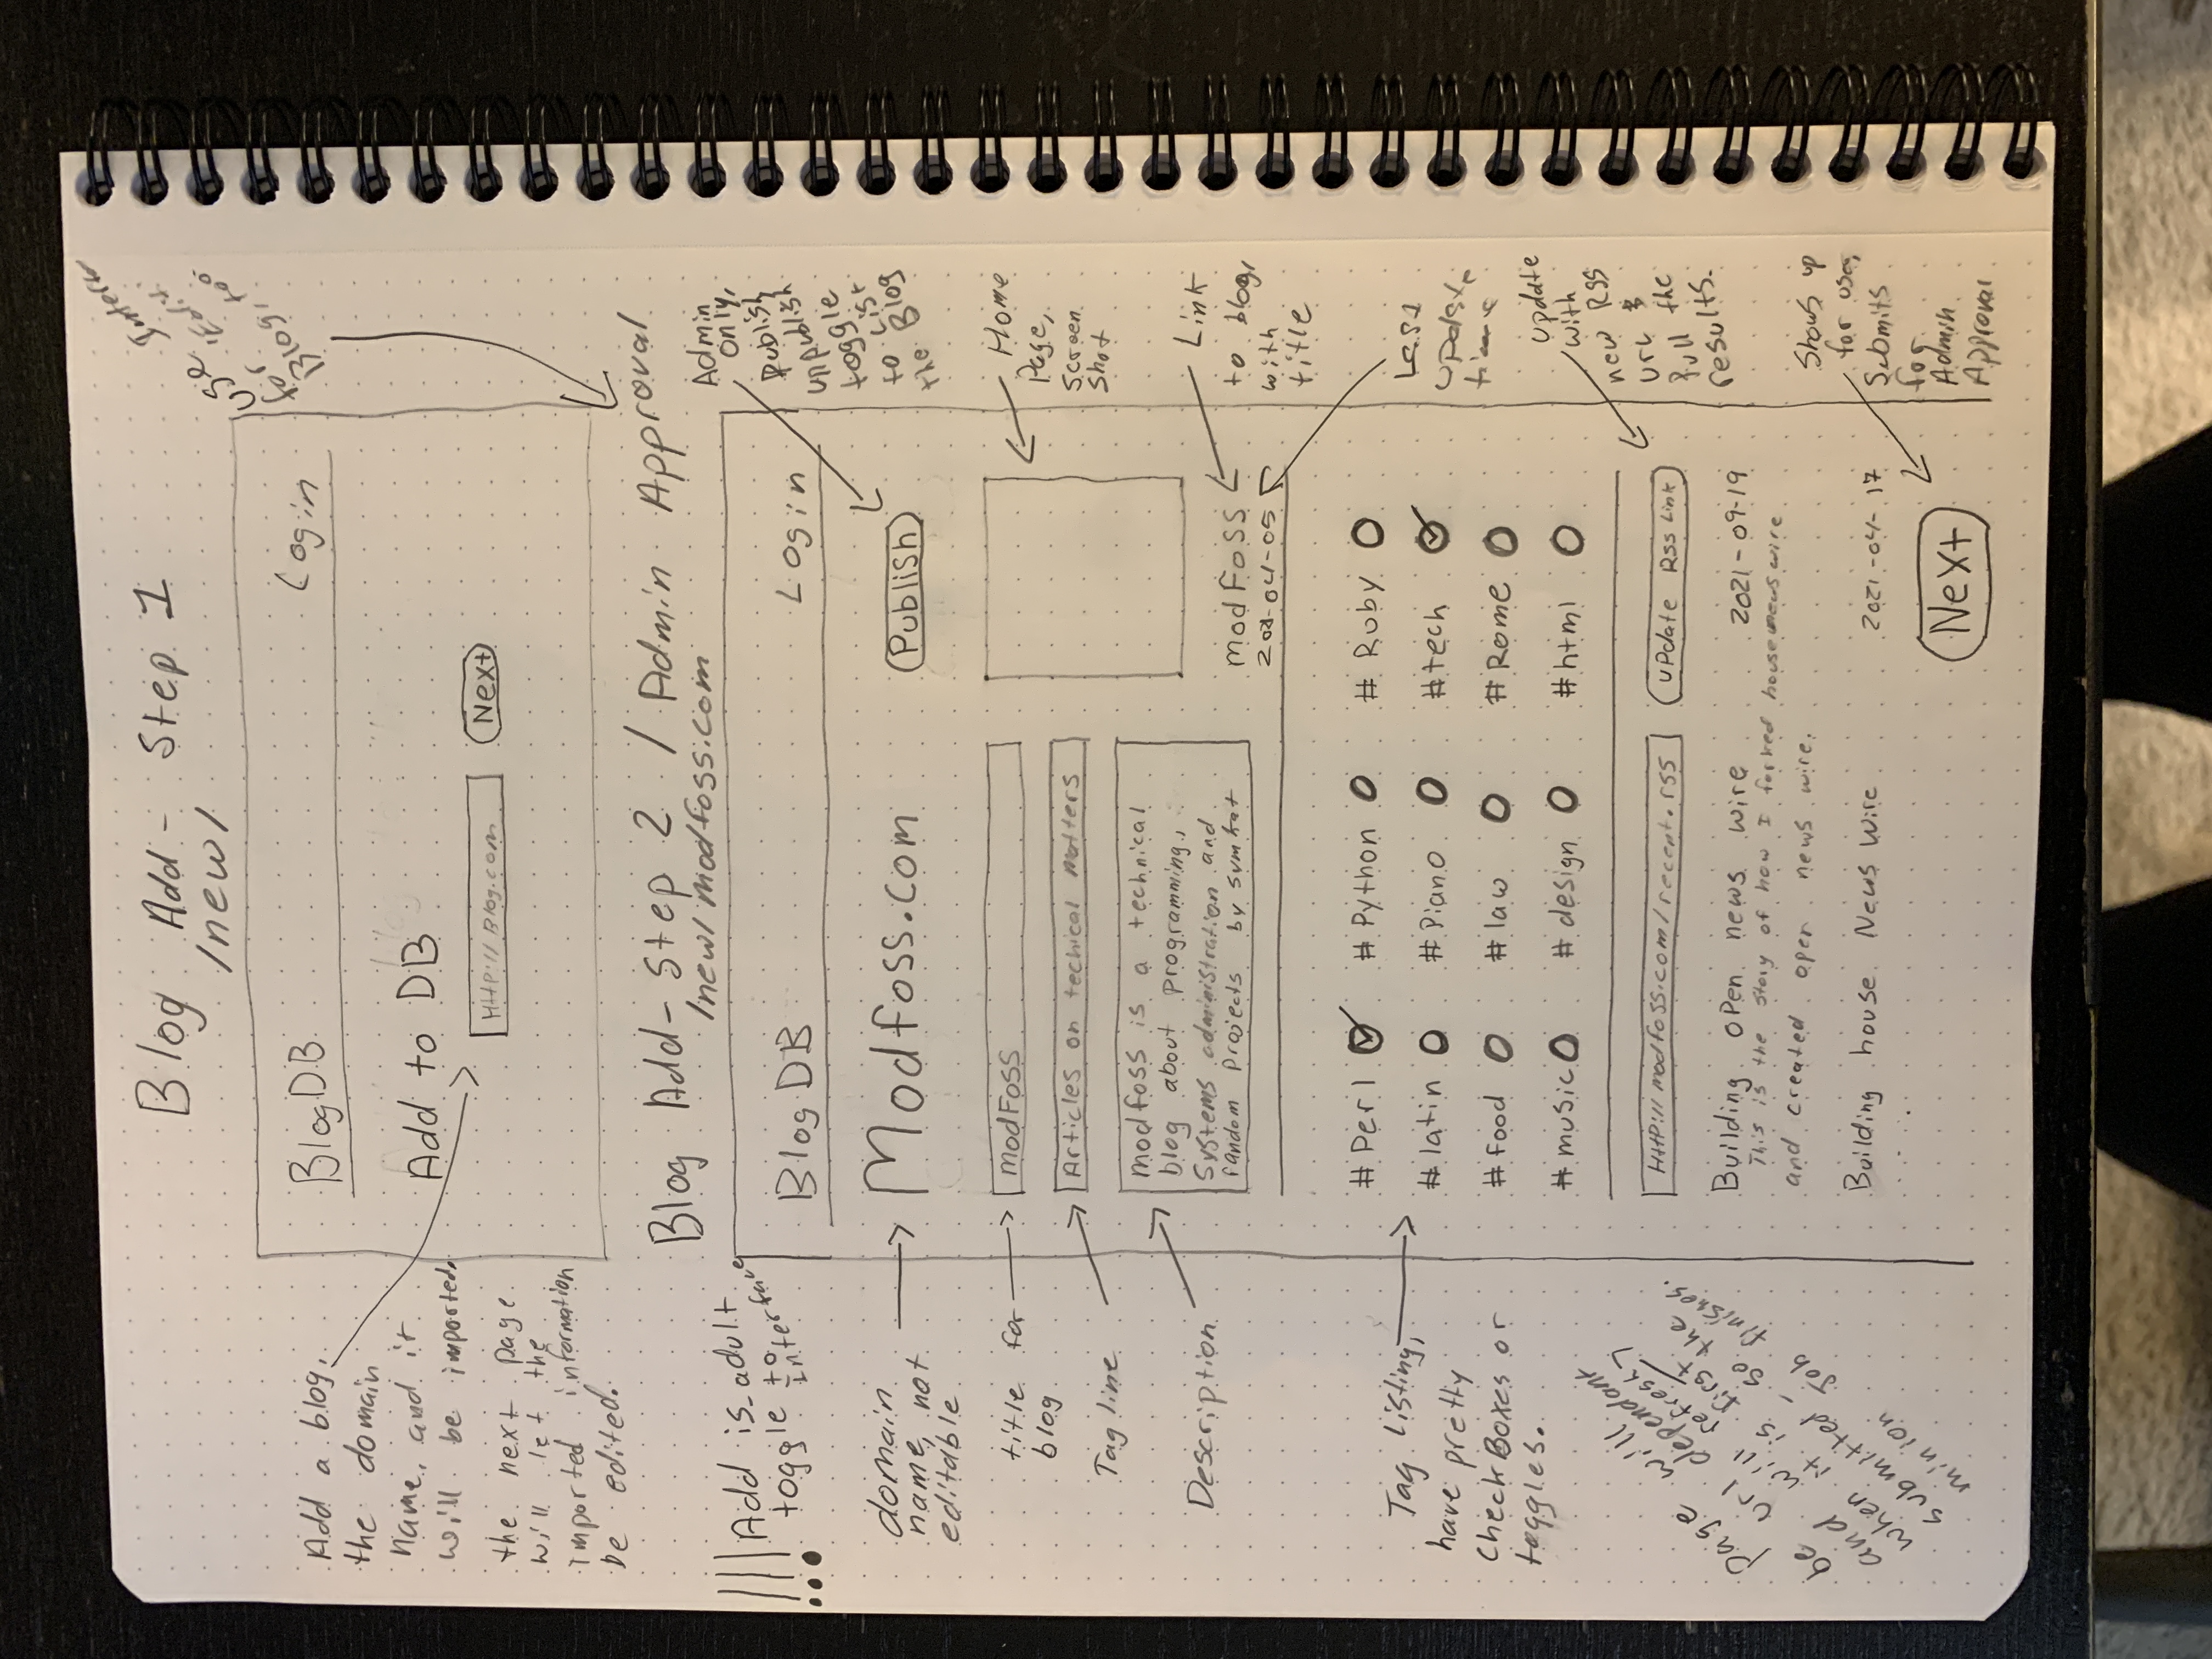 Blog Add - Step 1
/new/
BlogDB
Login
Add to DB
HTTP://Blog.com
Next
Add a blog,
the domain
name, and it
will be imported.
the next page
will let the
imported information
be edited.
Blog
Blog Add - Step 2 / Admin Approval
/new/modfoss.com
!!! Add is_adult
toggle to
interface
BlogDB
Login
Admin
only,
publish
unpublish
toggle
to list
the Blog
Modfoss.com
Publish
domain
name, not
editable
modFoss
title for
blog
Home
Page,
Screen
Shot
Articles on techical matters
Tag line
modfoss is a technical
blog about programming,
Systems administration and
random projects by symkat
Description
modfoss
2021-04-05
Link
to blog,
with
title
Last
update
time
#Perl
#Python
#Ruby
#latin
#Piano
#tech
#food
#law
#Rome
#music
#design
#html
Tag Listing,
have pretty
CheckBoxes or
toggles.
HTTP://modfoss.com/recent.rss
UPdate Rss Link
update
with
new Rss
url &
Pull the
results.
Building OPen news wire
2021-09-19
This is the story of how I forked housenewswire
and created open news wire.
Building house News Wire
2021-04-17
....
Next
Shows up
for user,
Submits
for
Admin
Approval
Page will
url dependant
will refresh/
be first
and it is the
when go
submitted, finishes
minion job